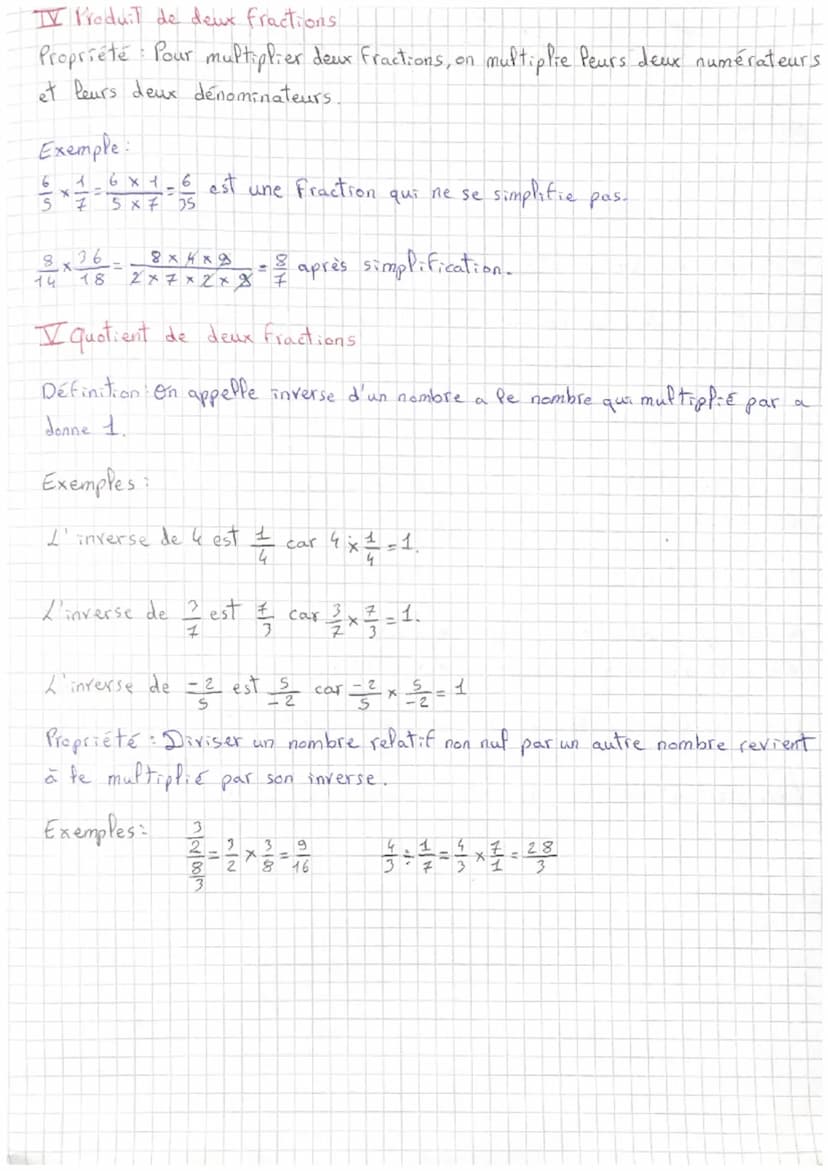 IV Produit de deux fractions
Propriété : Pour multiplier deux fractions, on multiplie leurs deux numérateurs
et leurs deux dénominateurs.
Exemple :
6/5 × 1/7 = (6 × 1)/(5 × 7) = 6/35 est une fraction qui ne se simplifie pas.
8/14 × 36/18 = (8 × 4 × 9)/(2 × 7 × 2 × 9) = 8/7 après simplification.
V Quotient de deux fractions
Définition : On appelle inverse d'un nombre a le nombre qui multiplié par a
donne 1.
Exemples :
L'inverse de 4 est 1/4 car 4 × 1/4 = 1.
L'inverse de 3/7 est 7/3 car 3/7 × 7/3 = 1.
L'inverse de -2/5 est 5/-2 car -2/5 × 5/-2 = 1
Propriété : Diviser un nombre relatif non nul par un autre nombre revient
à le multiplié par son inverse.
Exemples : (3/2)/(8/3) = 3/2 × 3/8 = 9/16 4/3 ÷ 1/7 = 4/3 × 7/1 = 28/3